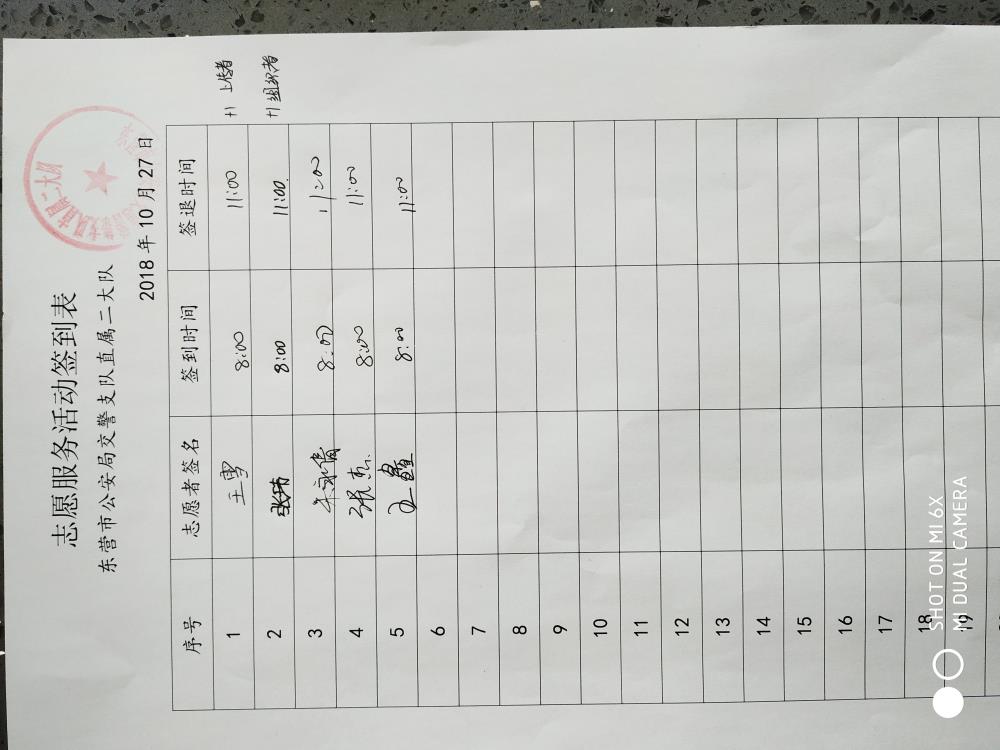 志愿服务活动签到表
东营市公安局交警支队直属二大队
2018 年 10 月 27 日
序号 志愿者签名 签到时间 签退时间
1 王雪 8:00 11:00 +1 上传者
2 张玮 8:00 11:00 +1 组织者
3 8:00 11:00
4 张杰 8:00 11:00
5 8:00 11:00
6
7
8
9
10
11
12
13
14
15
16
17
18
19
SHOT ON MI 6X
MI DUAL CAMERA